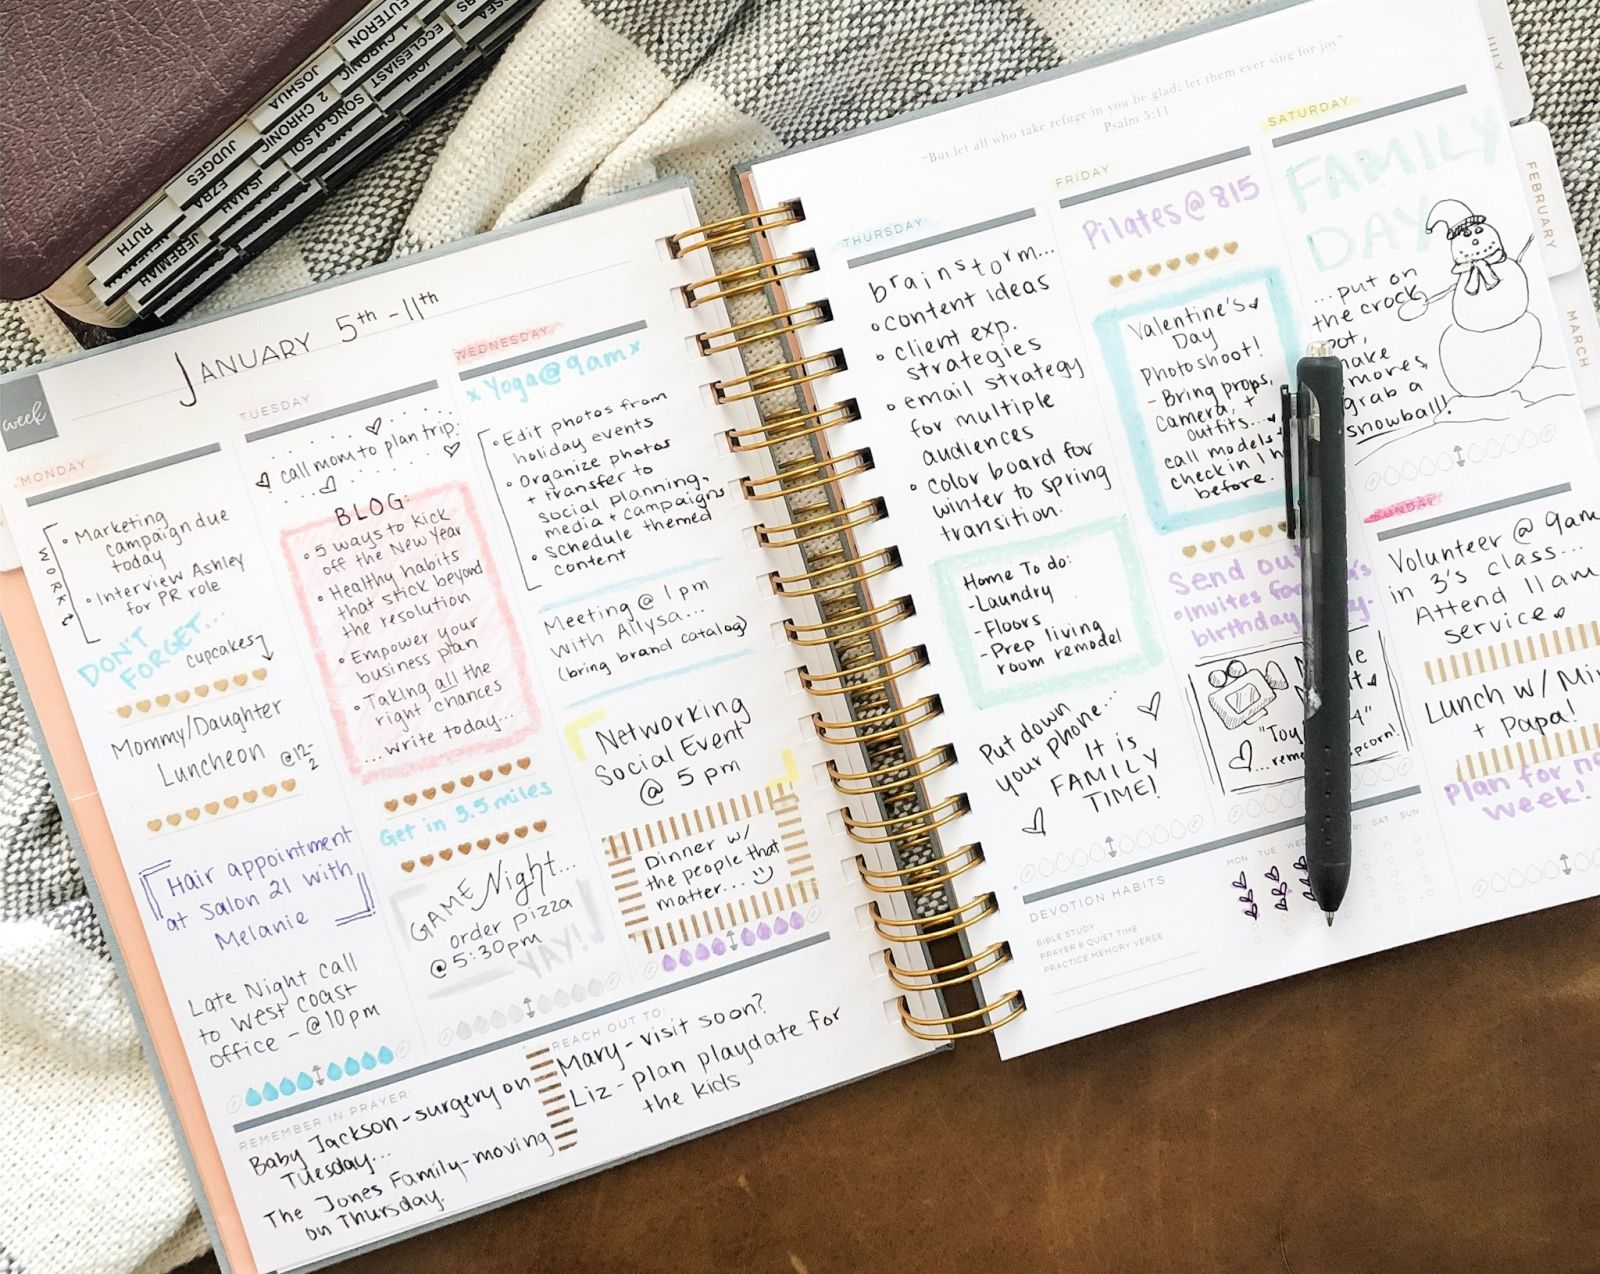 EUTERON
1 CHRONIC
JOSHUA
ECCLESIAST
JOEL
2 CHRONIC
SONG of SOL
JUDGES
EZRA
ISAIAH
RUTH
JEREMIAH
week
JANUARY 5th - 11th
MONDAY
WORK
• Marketing
campaign due
today
• Interview Ashley
for PR role
DON'T
FORGET...
cupcakes
Mommy/Daughter
Luncheon @12-
2
Hair appointment
at Salon 21 with
Melanie
Late Night call
to west coast
office - @10pm
TUESDAY
call mom to plan trip.
BLOG:
• 5 ways to kick
off the New Year
• Healthy habits
that stick beyond
the resolution
• Empower your
business plan
• Taking all the
right chances
....write today...
Get in 3.5 miles
GAME Night...
order pizza
@5:30pm
YAY!
WEDNESDAY
x Yoga@9am x
• Edit photos from
holiday events
• Organize photos
+ transfer to
social planning,
media + campaigns
• Schedule themed
content
Meeting @ 1 pm
with Allysa...
(bring brand catalog)
Networking
Social Event
@ 5 pm
Dinner w/
the people that
matter...
REMEMBER IN PRAYER:
Baby Jackson - surgery on
Tuesday...
The Jones Family - moving
on Thursday.
REACH OUT TO:
Mary - visit soon?
Liz - plan playdate for
the kids
"But let all who take refuge in you be glad; let them ever sing for joy"
Psalm 5:11
THURSDAY
brainstorm...
• content ideas
• client exp.
strategies
• email strategy
for multiple
audiences
• color board for
winter to spring
transition.
Home To do:
- Laundry
- Floors
- Prep living
room remodel
Put down
your phone...
It is
FAMILY
TIME!
FRIDAY
Pilates @ 815
Valentine's
Day
Photoshoot!
- Bring props,
camera, +
outfits...
call models +
check in 1 h
before.
Send out
• Invites for
birthday
"Toy 4"
SATURDAY
FAMILY
DAY
...put on
the crock
pot,
make
smores,
grab a
snowball!
SUNDAY
Volunteer @ 9am
in 3's class...
Attend 11am
service.
Lunch w/
+ Papa!
Plan for
week!
DEVOTION HABITS
BIBLE STUDY
PRAYER & QUIET TIME
PRACTICE MEMORY VERSE
MON TUE WED FRI SAT SUN
JULY
FEBRUARY
MARCH